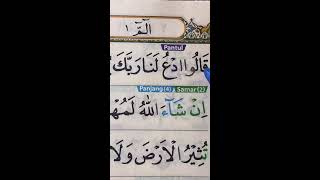 الٓمّٓ ١
Pantul
قَالُوا ادْعُ لَنَا رَبَّكَ
Panjang(4) Samar(2)
اِنْ شَآءَ اللّٰهُ لَمُهْ
تُثِيْرُ الْاَرْضَ وَلَا